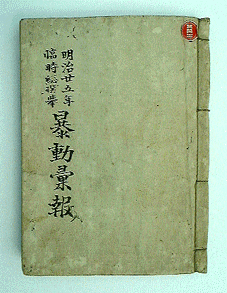 明治廿五年
臨時総撰挙
暴動彙報